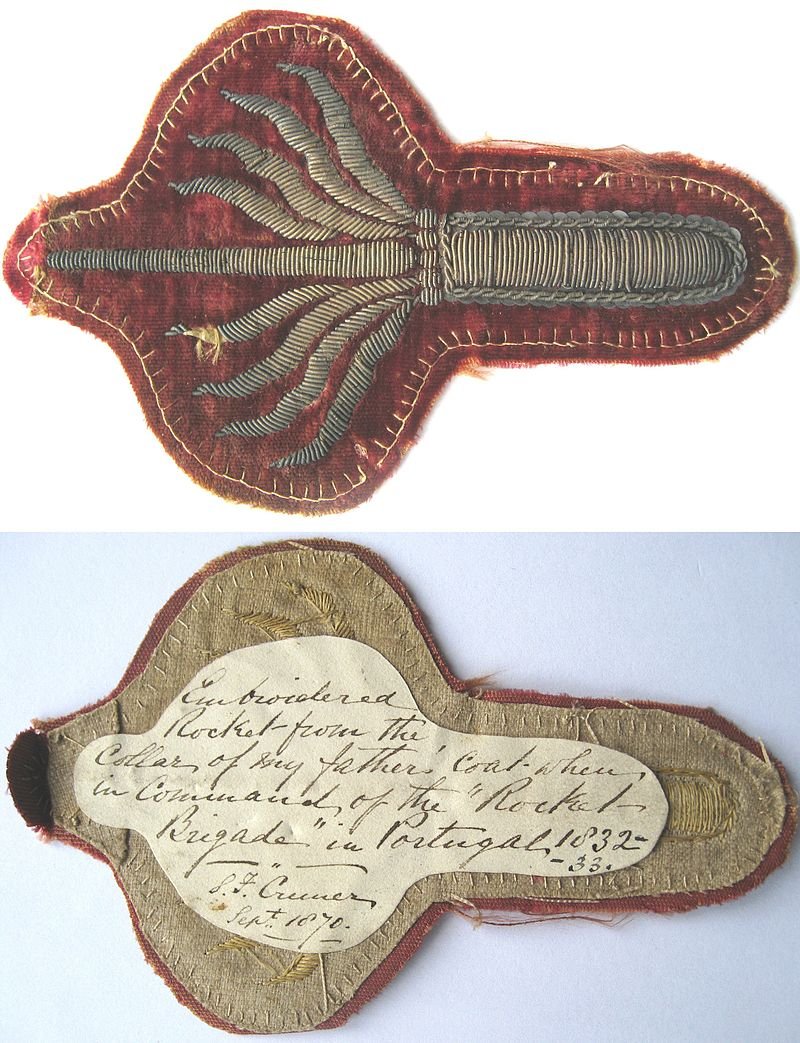 Embroidered
Rocket from the
Collar of my father' coat when
in Command of the "Rocket
Brigade" in Portugal 1832-
-33.
S. F. Cremer
Sept. 1870.